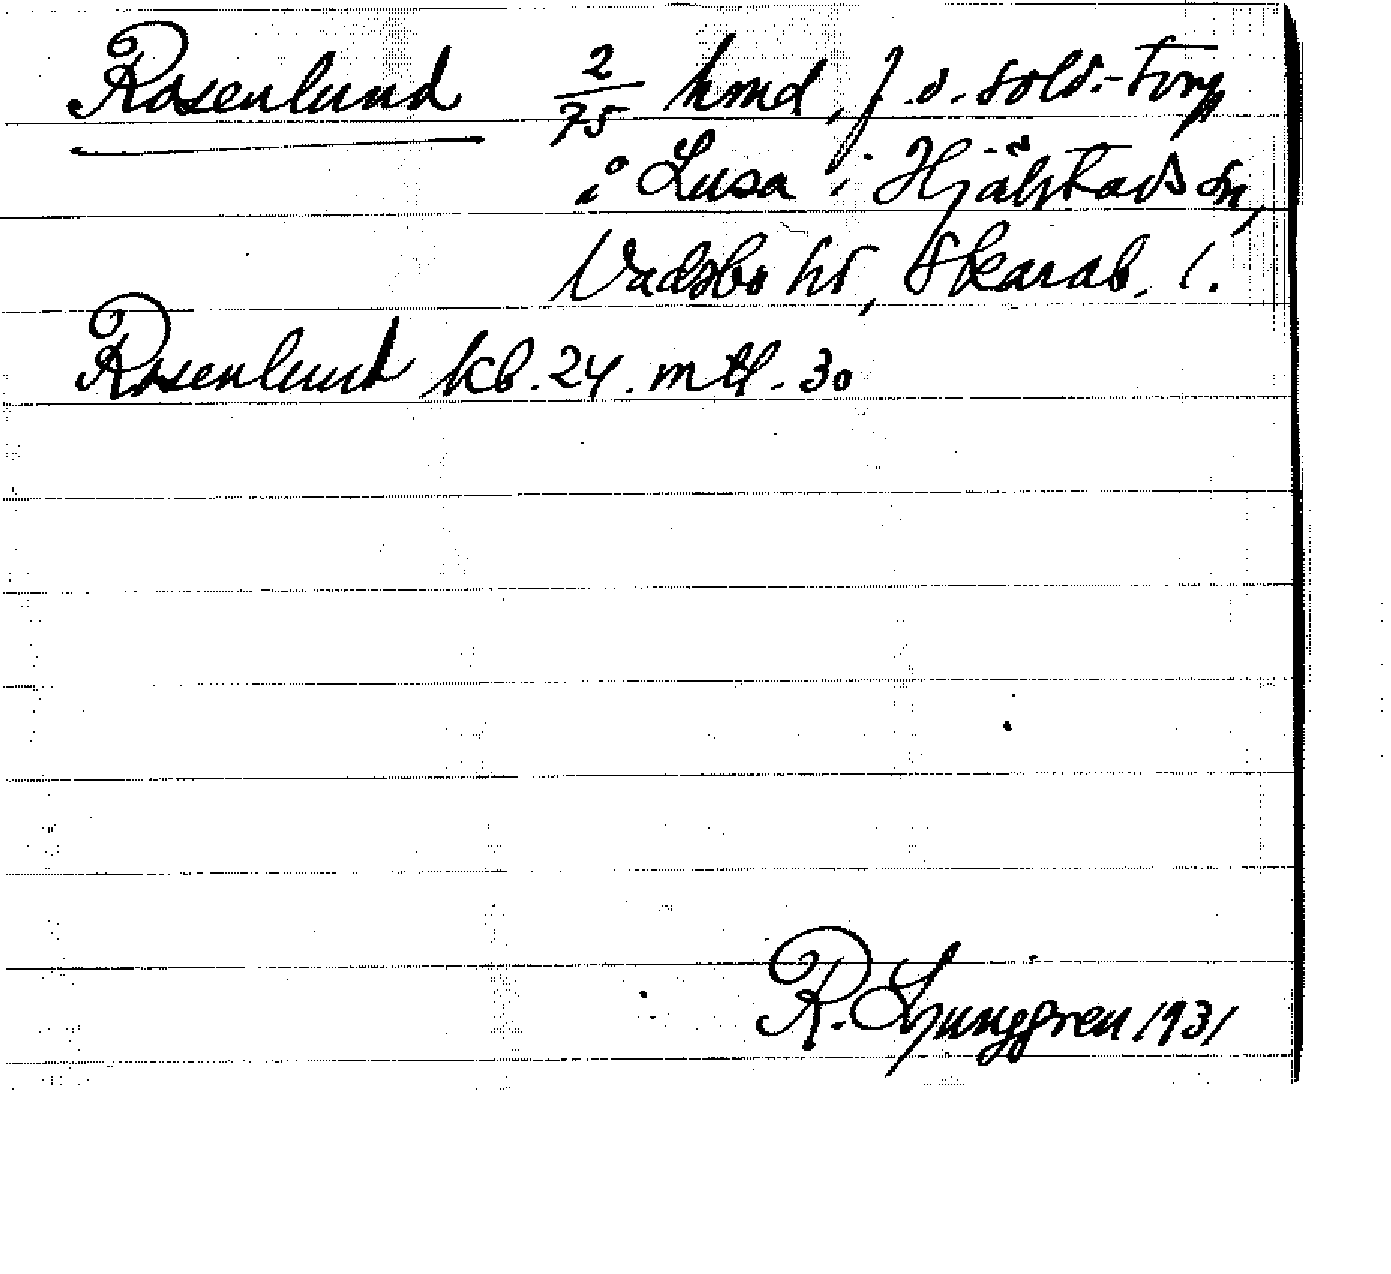 Rosenlund 2/75 hmd, f.d. sold.-torp
i Lusa i Hjälstads sn,
Vadsbo hd, Skarab. l.
Rosenlund kb. 24. mtl. 30
R. Ljunggren 1931